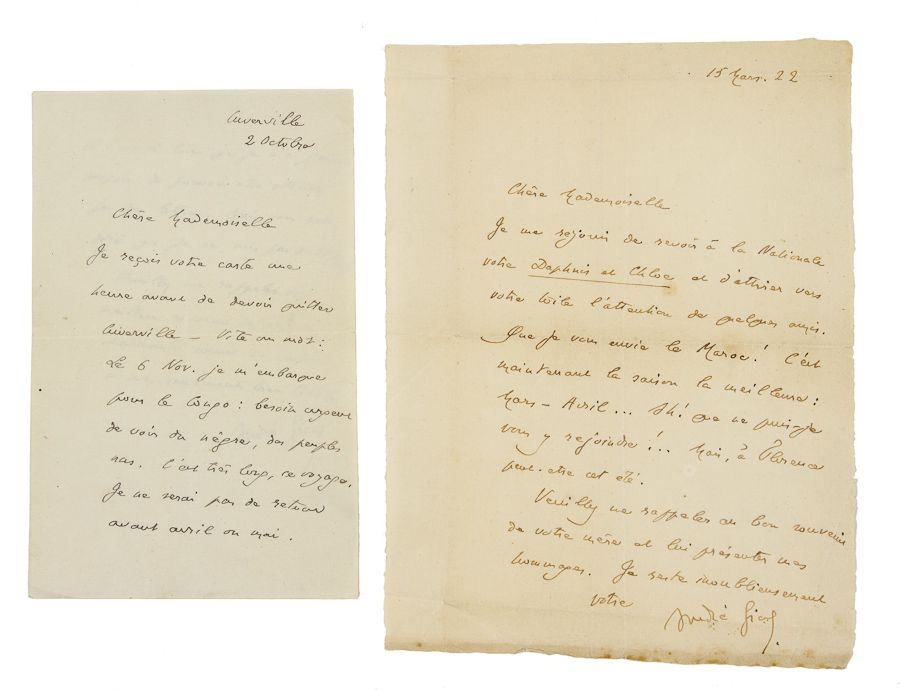 Cuverville
2 Octobre
Chère Mademoiselle
Je reçois votre carte une
heure avant de devoir quitter
Cuverville – Vite un mot :
Le 6 Nov. je m'embarque
pour le Congo : besoin urgent
de voir du nègre, des peuples
nus. C'est très long, ce voyage.
Je ne serai pas de retour
avant avril ou mai.
15 Mars. 22
Chère Mademoiselle
Je me réjouis de revoir à la Nationale
votre Daphnis et Chloé et d'attirer vers
votre toile l'attention de quelques amis.
Que je vous envie le Maroc ! C'est
maintenant la saison la meilleure :
Mars – Avril... Ah ! que ne puis-je
vous y rejoindre !... Mais, à Florence
peut-etre cet été.
Veuillez me rappeler au bon souvenir
de votre mère et lui présenter mes
hommages. Je reste inoublieusement
votre
André Gide